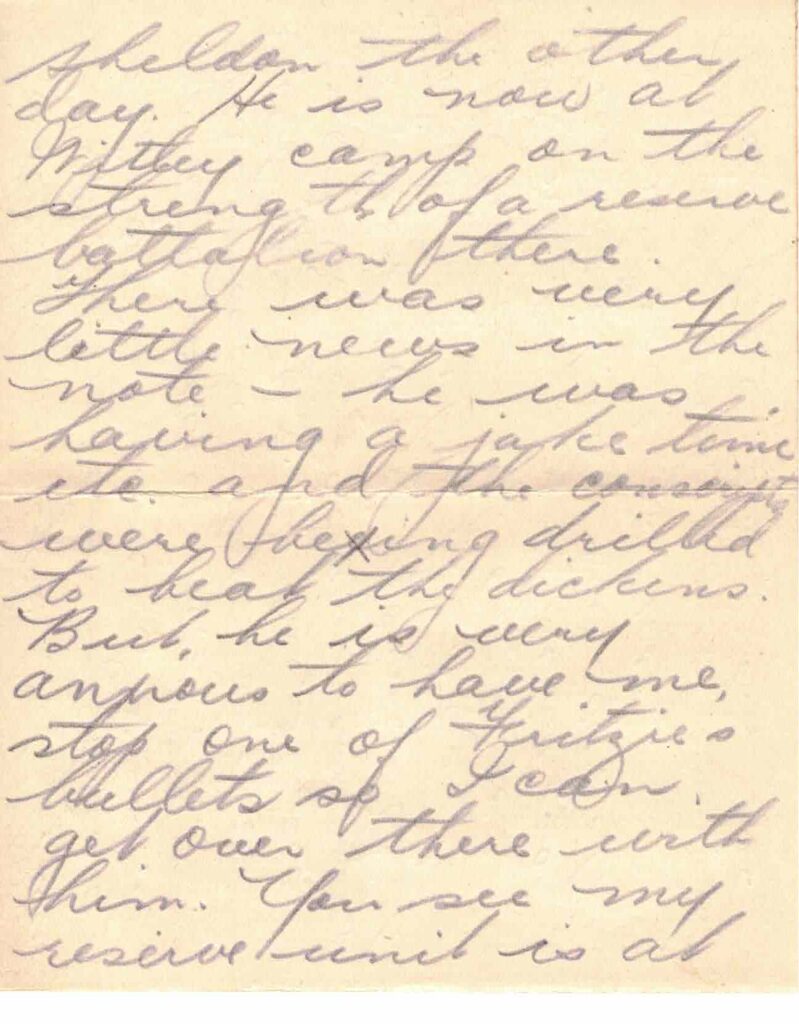 sheldon the other
day. He is now at
Witley camp on the
strength of a reserve
battalion there.
There was very
little news in the
note - he was
having a jake time
etc. and the conscripts
were being drilled
to beat the dickens.
But, he is very
anxious to have me,
stop one of Fritzie's
bullets so I can
get over there with
him. You see my
reserve unit is at